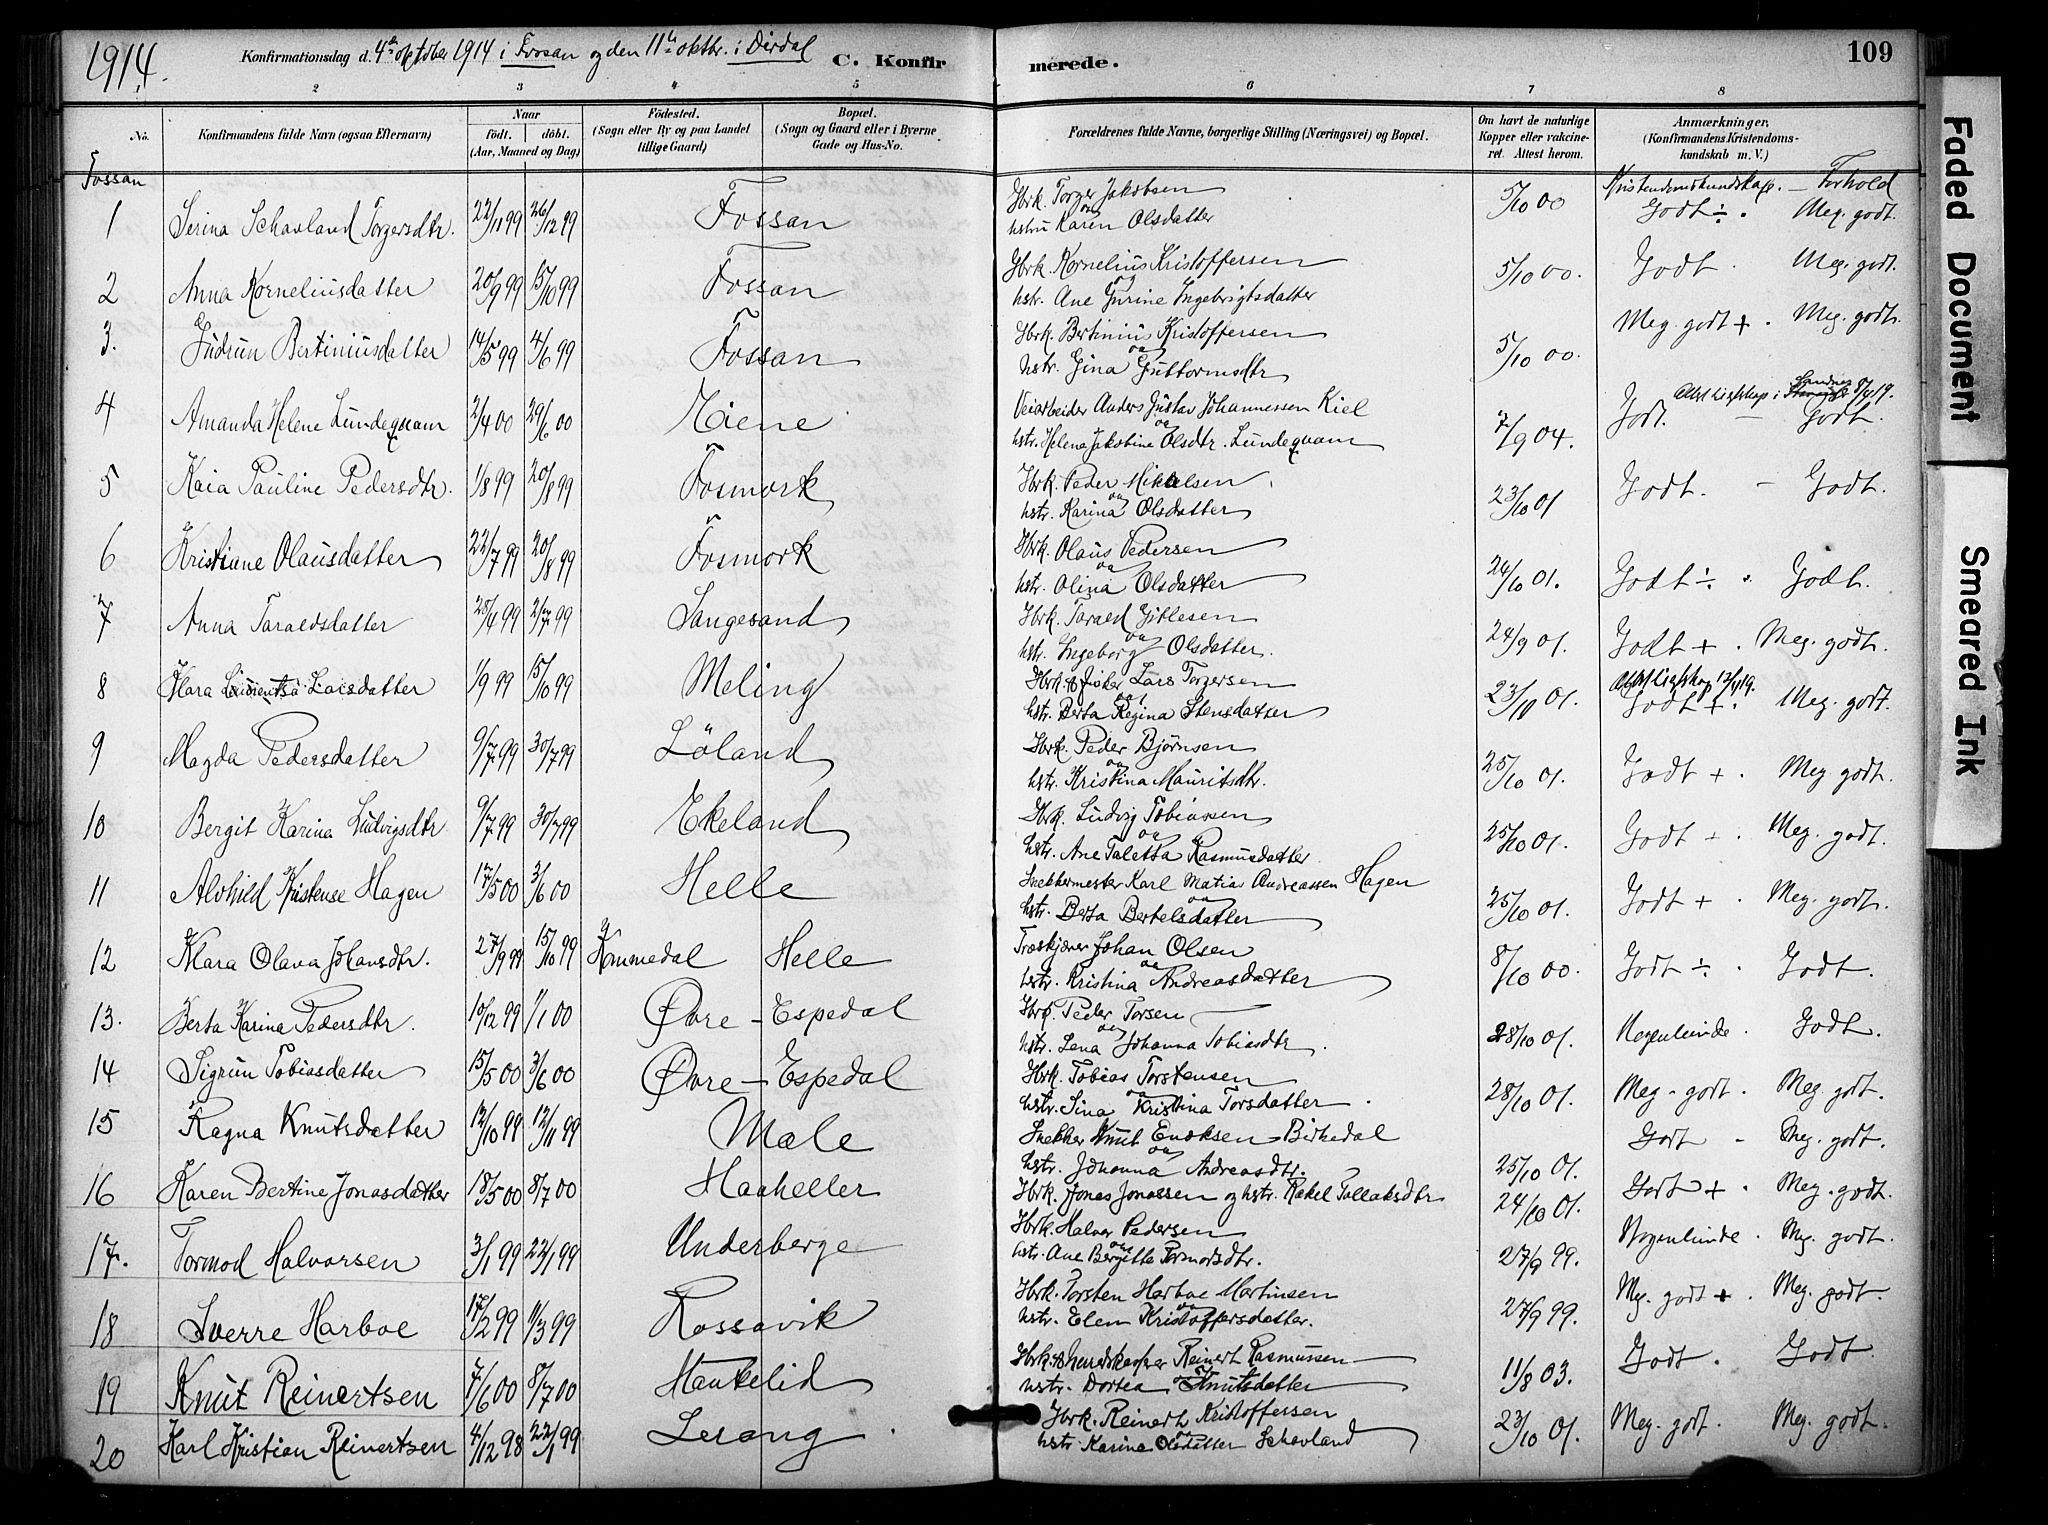 1914.
Konfirmationsdag d. 4de oktober 1914 i Fossan og den 11te oktbr. i Dirdal
C. Konfirmerede.
109
2 3 4 5 6 7 8
No.
Konfirmandens fulde Navn (ogsaa Efternavn)
Naar
født. døbt.
(Aar, Maaned og Dag)
Fødested.
(Sogn eller By og paa Landet
tillige Gaard)
Bopæl.
(Sogn og Gaard eller i Byerne
Gade og Hus-No.
Forældrenes fulde Navne, borgerlige Stilling (Næringsvei) og Bopæl.
Om havt de naturlige
Kopper eller vakcine-
ret. Attest herom.
Anmærkninger.
(Konfirmandens Kristendoms-
kundskab m. V.)
Fossan
Kristendomskundskap. — Forhold
1 Serina Schavland Torgersdtr. 22/11 99 26/12 99 Fossan Gbrk. Torger Jakobsen og hstru Karen Olsdatter 5/10 00 Godt ÷. Meg. godt.
2 Anna Korneliusdatter 20/9 99 15/10 99 Fossan Gbrk. Kornelius Kristoffersen og hstr. Ane Gurine Ingebrigtsdatter 5/10 00. Godt. Meg. godt.
3. Gudrun Bertiniusdatter 14/5 99 4/6 99 Fossan Gbrk. Bertinius Kristoffersen og hstr. Gina Guttormsdtr 5/10 00. Meg. godt +. Meg. godt.
4 Amanda Helene Lundeqvam 2/4 00 24/6 00 Moene Veiarbeider Anders Gustav Johannessen Kiel og hstr. Helena Jakobine Olsdtr. Lundeqvam 7/9 04. Godt. — Godt.
5 Kaia Pauline Pedersdtr. 1/8 99 20/8 99 Fosmork Gbrk. Peder Mikalsen og hstr. Karina Olsdatter 23/10 01 Godt. — Godt.
6 Kristiane Olausdatter 22/7 99 20/8 99 Fosmork Gbrk. Olaus Pedersen og hstr. Olina Olsdatter 24/10 01. Godt ÷. Godt.
7 Anna Taraldsdatter 28/4 99 2/7 99 Songesand Gbrk. Tarald Gitlesen og hstr. Ingeborg Olsdatter. 24/9 01. Godt +. Meg. godt.
8 Klara Larsdatter 1/9 99 15/10 99 Meling Gbrk. & fisker Lars Torgersen og hstr. Berta Regina Stensdatter 23/10 01. Godt +. Meg. godt.
9 Magda Pedersdatter 9/7 99 30/7 99 Löland Gbrk. Peder Bjørnsen og hstr. Kristina Mauritsdtr. 25/10 01. Godt +. Meg godt.
10 Bergit Karina Ludvigsdtr 9/7 99 30/7 99 Ekeland Gbrk. Ludvig Tobiassen og hstr. Ane Taletta Rasmusdatter. 25/10 01. Godt +. Meg. godt.
11 Alvhild Kristense Hagen 17/5 00 3/6 00 Helle Snekkermester Karl Matias Andreassen Hagen og hstr. Berta Bertelsdatter 25/10 01. Godt +. Meg. godt.
12 Klara Olava Johansdtr. 27/9 99 15/10 99 Kommedal Helle Træskjærer Johan Olsen og hstr. Kristina Andreasdatter 8/10 00. Godt ÷. Godt.
13. Berta Karina Pedersdtr. 10/12 99 1/1 00 Øvre - Espedal Gbrk. Peder Torsen og hstr. Lena Johanna Tobiasdtr. 28/10 01. Nogenlunde. Godt.
14 Sigrun Tobiasdatter 15/5 00 3/6 00 Øvre - Espedal Gbrk. Tobias Torstensen og hstr. Sina Kristina Torsdatter. 28/10 01. Meg. godt. Meg. godt.
15 Ragna Knutsdatter 12/10 99 12/11 99 Mæle Snekker Knut Enoksen Birkedal og hstr. Johanna Andreasdtr. 25/10 01. Godt - Meg. godt.
16 Karen Bertine Jonasdatter 18/5 00 8/7 00 Haaheller Gbrk. Jonas Jonassen og hstr. Rakel Tollaksdtr 24/10 01. Godt +. Meg. godt.
17. Tormod Halvorsen 3/1 99 22/1 99 Underberge Gbrk. Halvor Pedersen og hstr. Ane Bergitte Tormodsdtr. 27/9 99. Nogenlunde. Meg. godt.
18 Sverre Harboe 17/2 99 1/3 99 Rossavik Gbrk. Torsten Harboe Martinsen og hstr. Elen Kristoffersdatter. 27/9 99. Meg. godt +. Meg. godt.
19 Knut Reinertsen 7/6 00 8/7 00 Haukelid Gbrk. & Reinert Rasmussen hstr. Dortea Knutsdatter 11/8 03. Godt. Godt.
20 Karl Kristian Reinertsen 4/12 98 22/1 99 Lerang Gbrk. Reinert Kristoffersen og hstr. Karina Olsdatter Schavland 23/10 01. Meg. godt. Meg. godt.
Faded Document
Smeared Ink